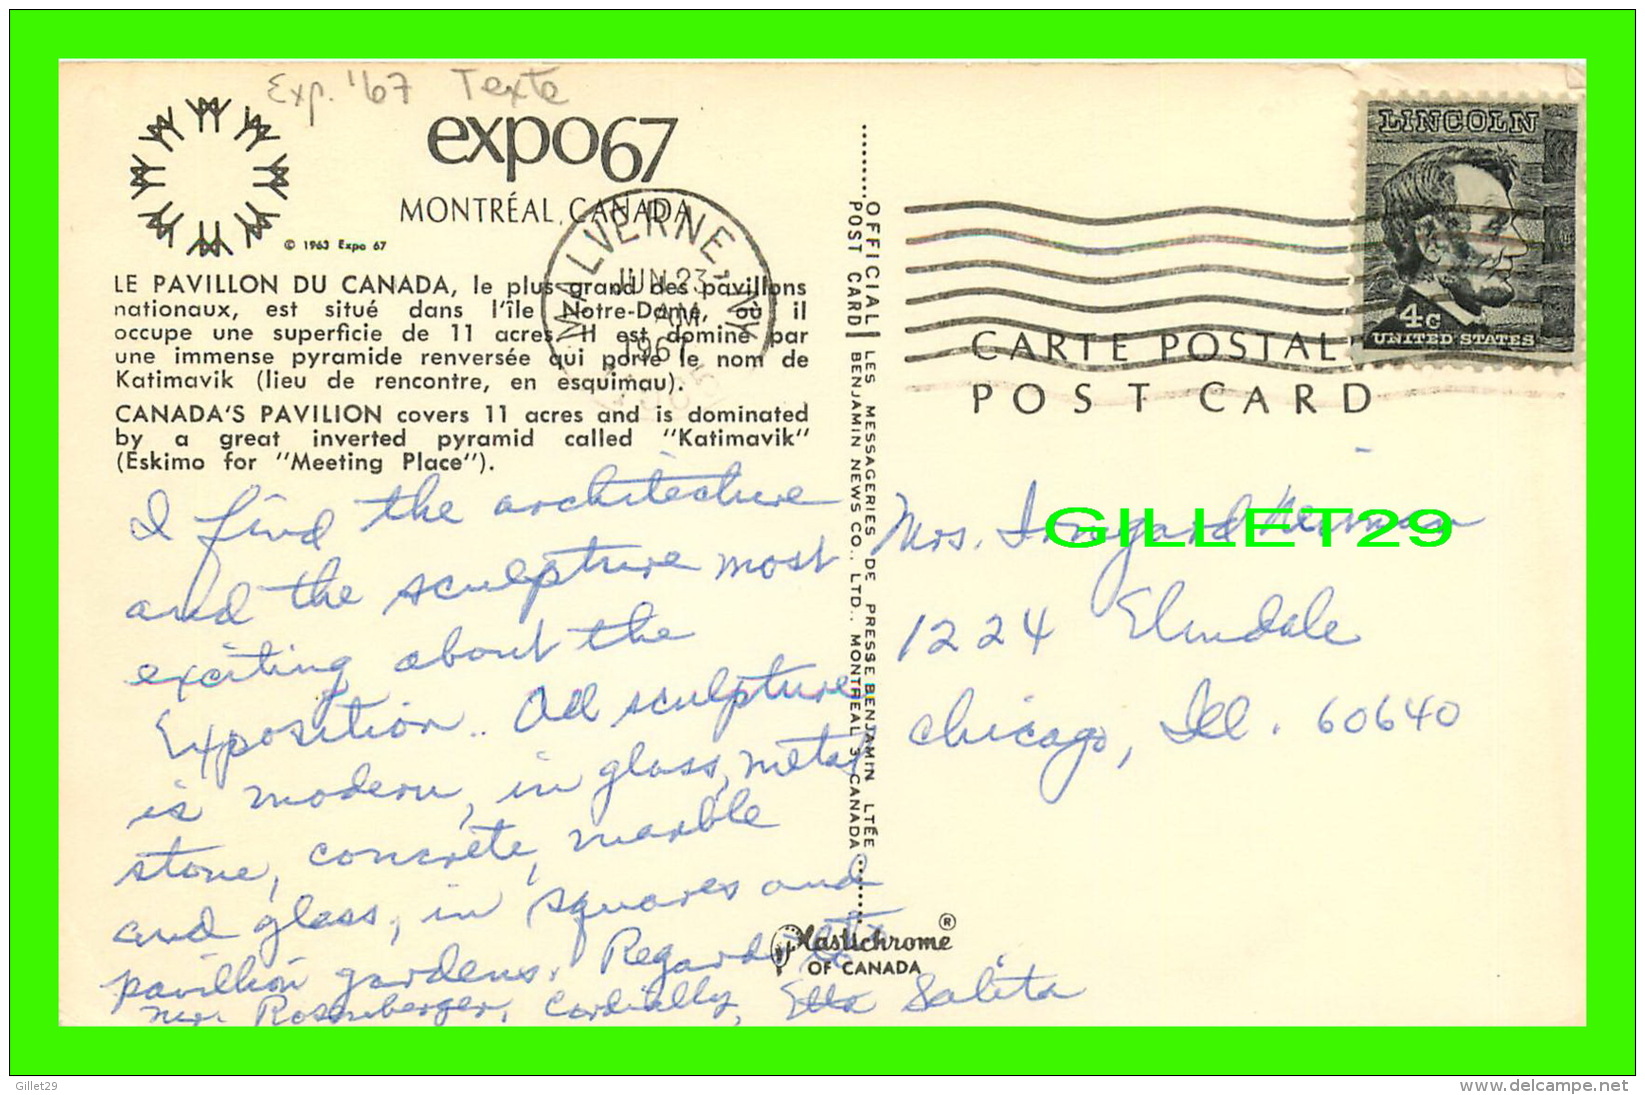 Exp. '67 Texte
expo67
MONTRÉAL, CANADA
© 1963 Expo 67
LE PAVILLON DU CANADA, le plus grand des pavillons
nationaux, est situé dans l'île Notre-Dame, où il
occupe une superficie de 11 acres. Il est dominé par
une immense pyramide renversée qui porte le nom de
Katimavik (lieu de rencontre, en esquimau).
CANADA'S PAVILION covers 11 acres and is dominated
by a great inverted pyramid called "Katimavik"
(Eskimo for "Meeting Place").
MALVERNE, NY
JUN 23
AM
1967
I find the architecture
and the sculpture most
exciting about the
Exposition.. All sculpture
is modern, in glass, metal
stone, concrete, marble
and glass, in squares and
pavillion gardens. Regards to
Mr. Rosenberger, Cordially, Etta Salita
OFFICIAL POST CARD
LES MESSAGERIES DE PRESSE BENJAMIN LTÉE
BENJAMIN NEWS CO., LTD., MONTREAL 3, CANADA
Plastichrome ®
OF CANADA
LINCOLN
4c
UNITED STATES
CARTE POSTALE
POST CARD
Mrs. Irmgard Neiman
GILLET29
1224 Elmdale
Chicago, Ill. 60640
Gillet29
www.delcampe.net